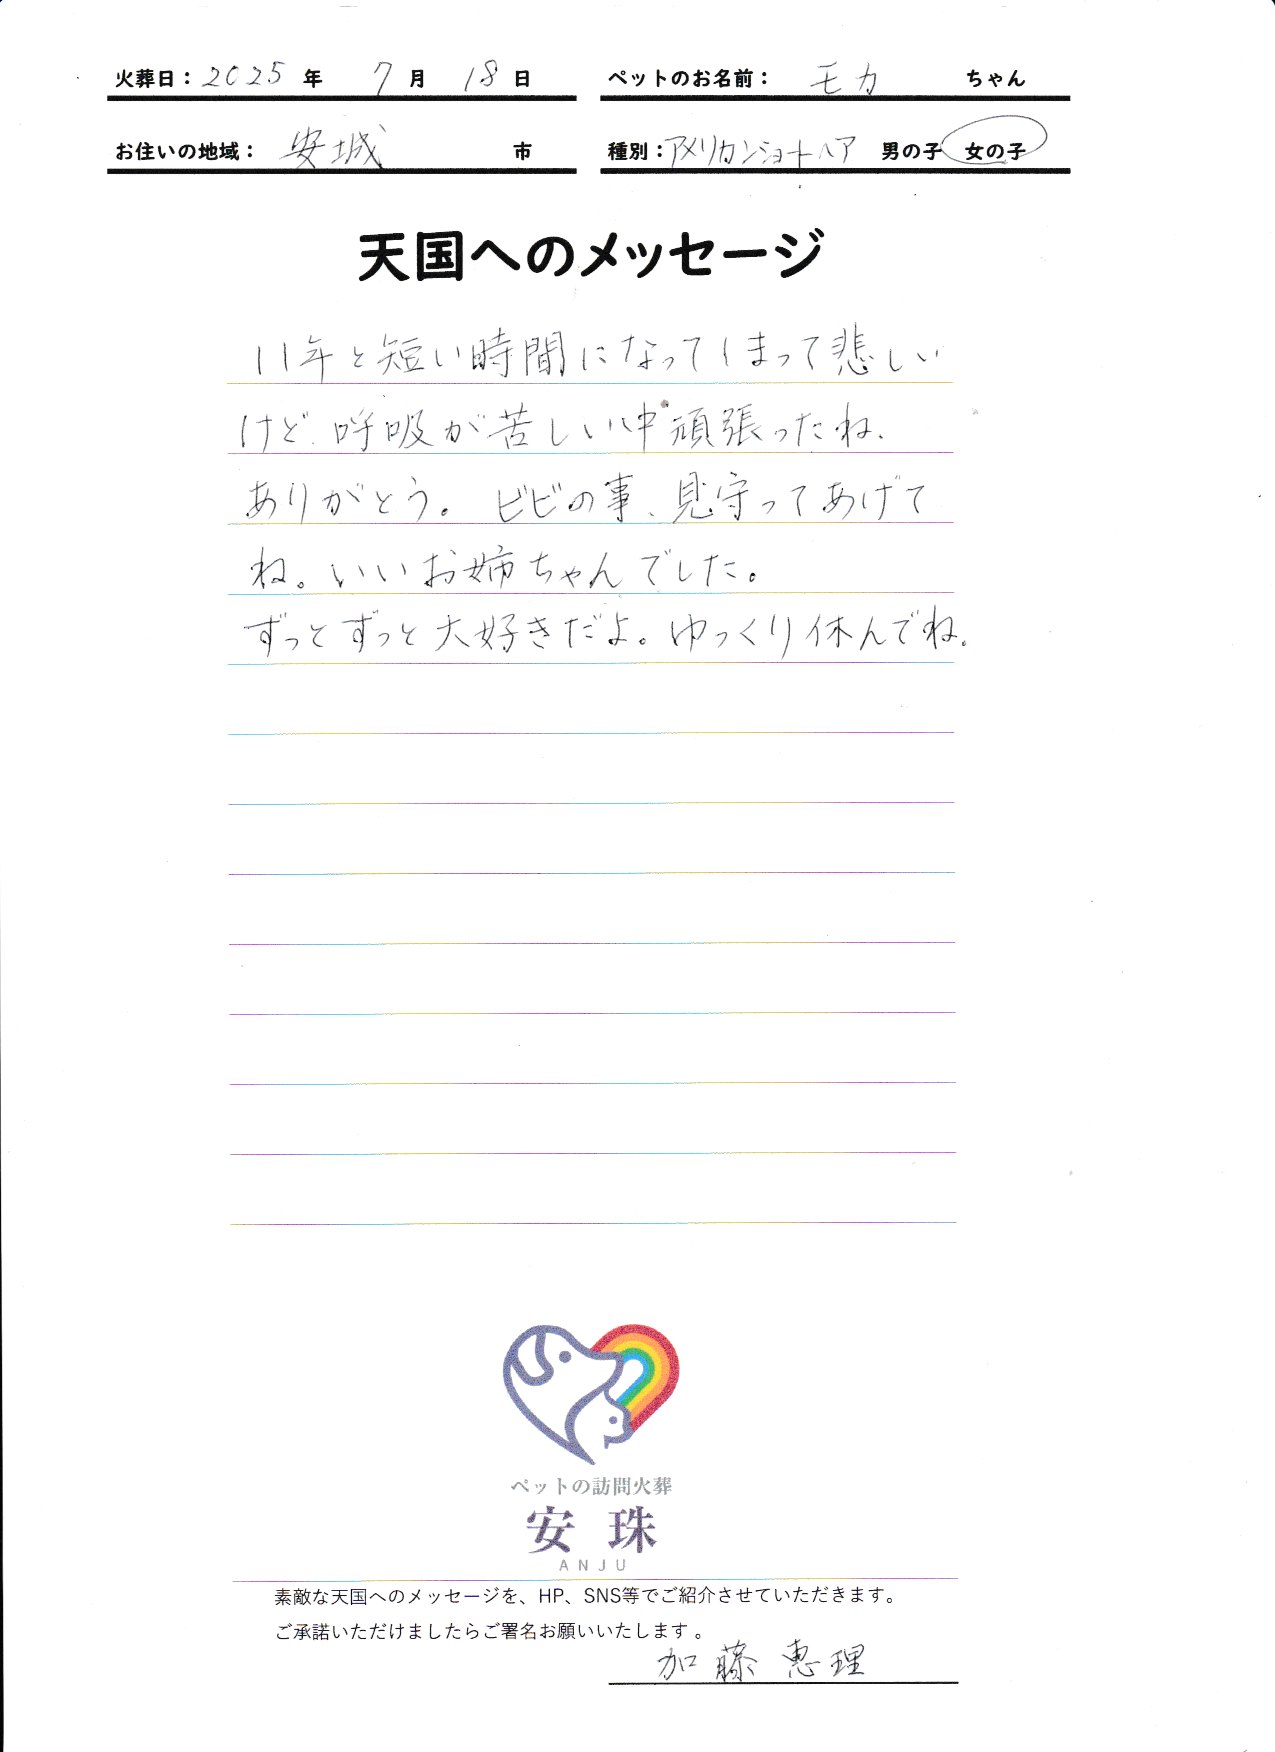 火葬日：2025 年 7 月 18 日 ペットのお名前： モカ ちゃん
お住いの地域： 安城 市 種別：アメリカンショートヘア 男の子 女の子
天国へのメッセージ
11年と短い時間になってしまって悲しい
けど、呼吸が苦しい中頑張ったね、
ありがとう。ビビの事、見守ってあげて
ね。いいお姉ちゃんでした。
ずっとずっと大好きだよ。ゆっくり休んでね。
ペットの訪問火葬
安珠
ANJU
素敵な天国へのメッセージを、HP、SNS等でご紹介させていただきます。
ご承諾いただけましたらご署名お願いいたします。
加藤恵理